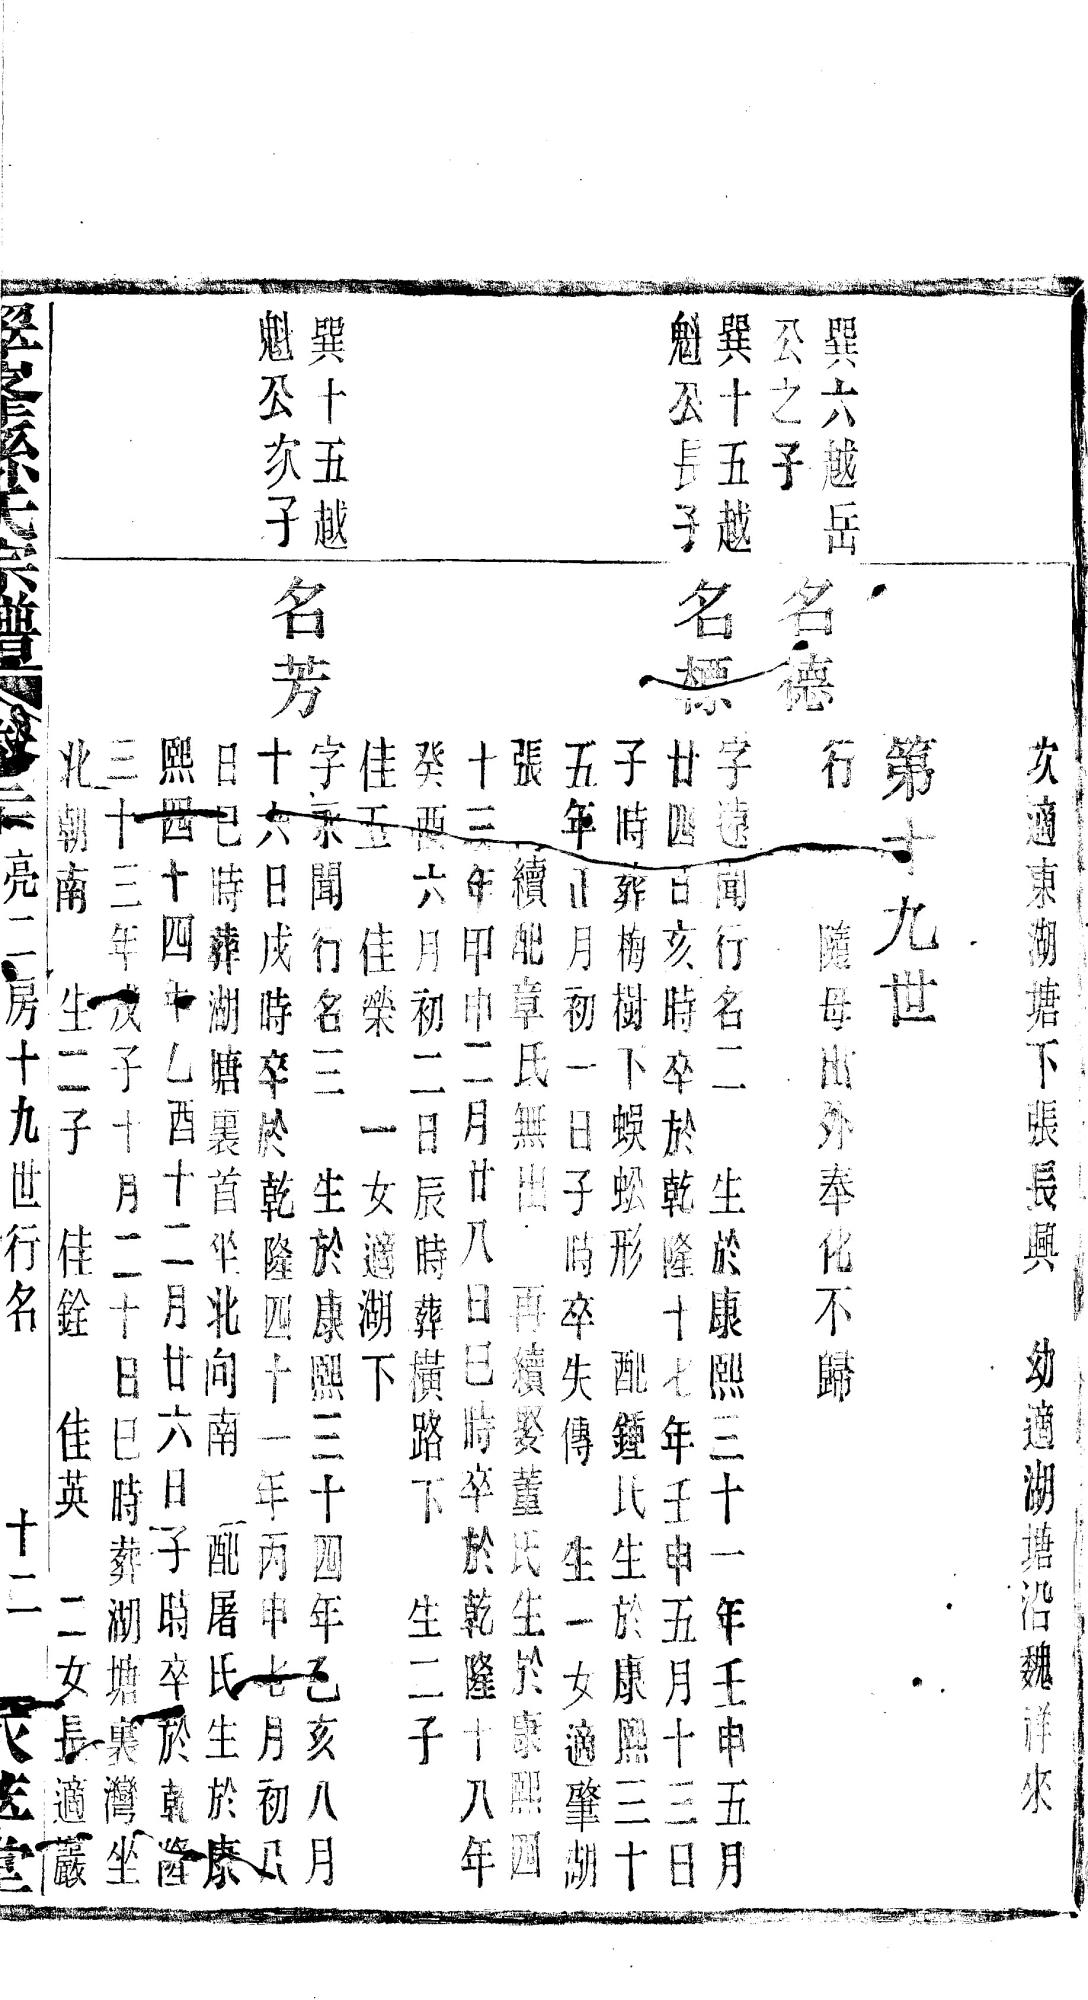 次適東湖塘下張長興　幼適湖塘沿魏祥來
第十九世
巽六越岳
公之子
名德
行　　隨母出外奉化不歸
巽十五越
魁公長子
名標
字遠聞行名二　生於康熙三十一年壬申五月
廿四日亥時卒於乾隆十七年壬申五月十三日
子時葬梅樹下蜈蚣形　配鍾氏生於康熙三十
五年正月初一日子時卒失傳　生一女適肇湖
張　續配章氏無出　再續娶董氏生於康熙四
十三年甲申二月廿八日巳時卒於乾隆十八年
癸酉六月初二日辰時葬橫路下　生二子
佳玉　佳榮　一女適湖下
巽十五越
魁公次子
名芳
字永聞行名三　生於康熙三十四年乙亥八月
十六日戌時卒於乾隆四十一年丙申七月初八
日巳時葬湖塘裏首坐北向南　配屠氏生於康
熙四十四年乙酉十二月廿六日子時卒於乾隆
三十三年戊子十月二十日巳時葬湖塘裏灣坐
北朝南　生二子　佳銓　佳英　二女長適嚴
氏宗譜
亮二房十九世行名
十二
堂